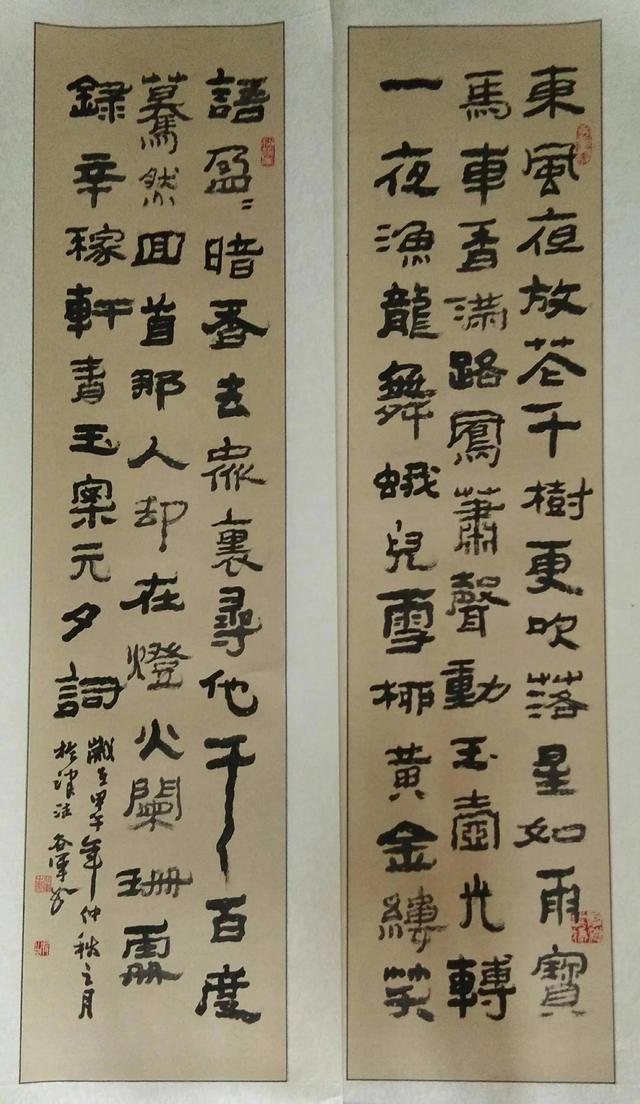 東風夜放花千樹更吹落星如雨寶
馬車香滿路鳳蕭聲動玉壺光轉
一夜漁龍舞蛾兒雪柳黃金縷笑
語盈〻暗香去眾裏尋他千百度
驀然回首那人却在燈火闌珊處
錄辛稼軒青玉案元夕詞
歲在甲午年仲秋之月
於津沽